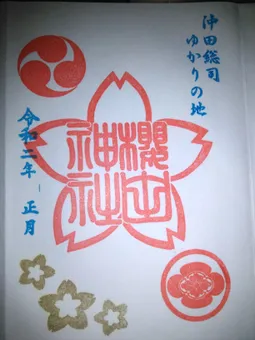 沖田総司
ゆかりの地
櫻田
神社
令和二年 - 正月